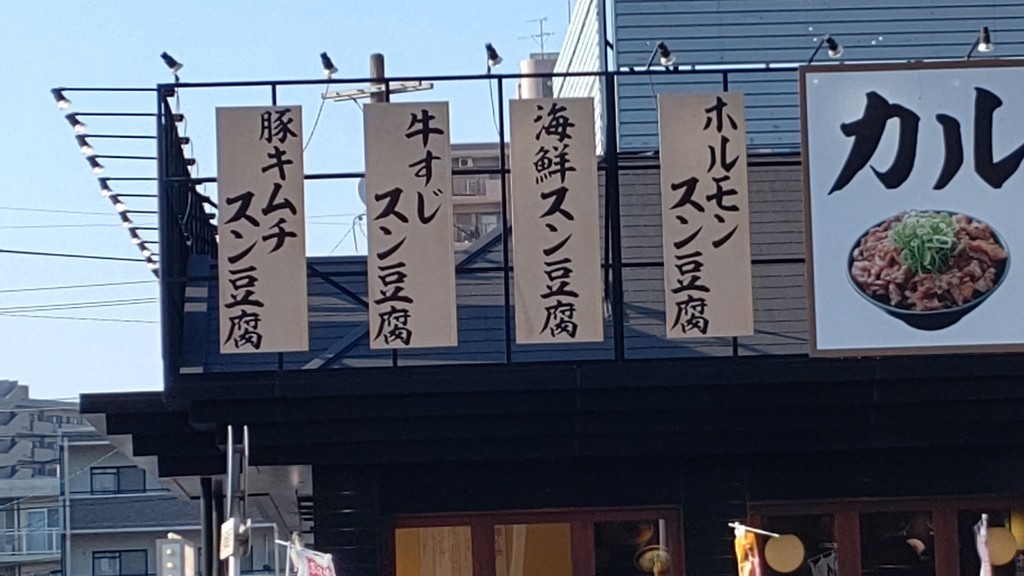 豚キムチ
スン豆腐
牛すじ
スン豆腐
海鮮スン豆腐
ホルモン
スン豆腐
カル